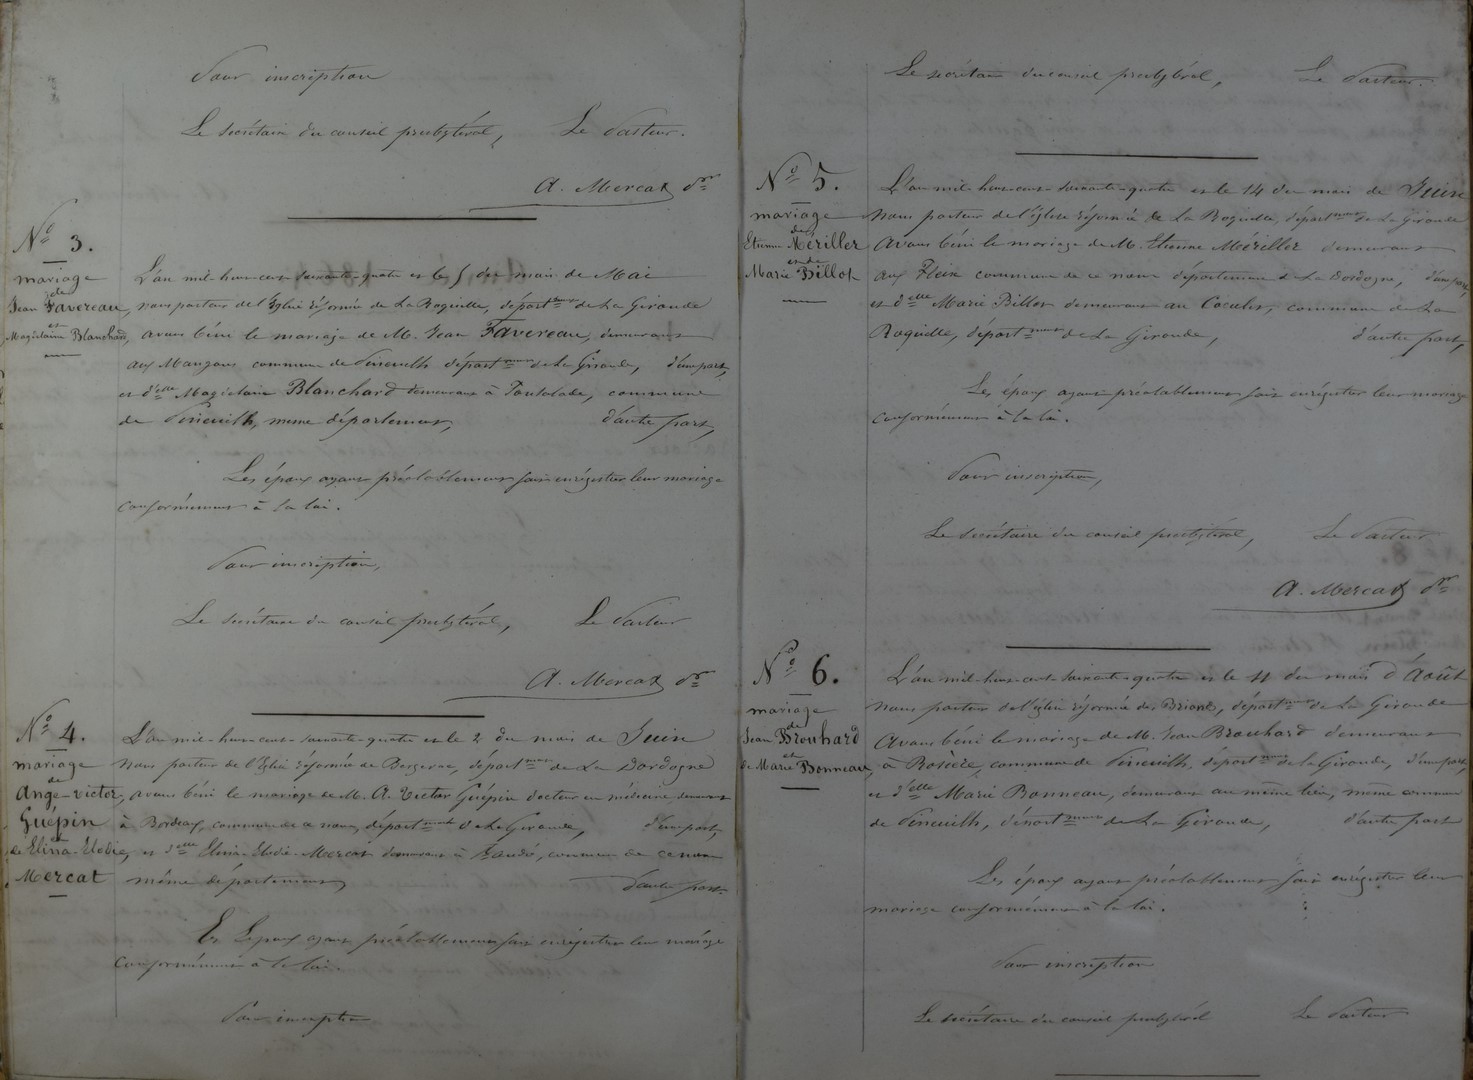 Pour inscription
Le secrétaire du conseil presbytéral, Le Pasteur.
A. Mercat
No 3.
mariage
de
Jean Favereau,
et
Magdelaine Blanchard,
L'an mil-huit-cent-soixante-quatre et le 5 du mois de Mai
nous pasteur de l'Eglise réformée de La Roquille, départment de La Gironde
avons béni le mariage de M. Jean Favereau, demeurant
aux commune de Pineuilh départment de La Gironde, d'une part,
et d'elle Magdelaine Blanchard demeurant à commune
de Pineuilh, meme département, d'autre part,
Les époux ayant préalablement fait enrégistrer leur mariage
conformément à la loi.
Pour inscription,
Le secrétaire du conseil presbytéral, Le Pasteur
A. Mercat
No 4.
mariage
de
Ange-Victor
Guépin
et
de Elina-Elodie
Mercat
L'an mil-huit-cent-soixante-quatre et le 2 du mois de Juin
nous pasteur de l'Eglise réformée de Bergerac, départment de La Dordogne
avons béni le mariage de M. A. Victor Guépin docteur en médecine demeurant
à Bordeaux, commune de ce nom, départment de La Gironde, d'une part,
et d'elle Elina-Elodie-Mercat demeurant à St André, commune de ce nom
même département, d'autre part.
Les époux ayant préalablement fait enrégistrer leur mariage
conformément à la loi.
Pour inscription
Le secrétaire du conseil presbytéral, Le Pasteur.
No 5.
mariage
de
Etienne Mériller
et de
Marie Billot
L'an mil-huit-cent-soixante-quatre et le 14 du mois de Juin
nous pasteur de l'église réformée de La Roquille, départment de La Gironde
avons béni le mariage de M. Etienne Mériller demeurant
au Fleix commune de ce nom département de La Dordogne, d'une part,
et d'elle Marie Billot demeurant au commune de La
Roquille, départment de La Gironde, d'autre part,
Les époux ayant préalablement fait enrégistrer leur mariage
conformément à la loi.
Pour inscription,
Le secrétaire du conseil presbytéral, Le Pasteur
A. Mercat
No 6.
mariage
de
Jean Brouhard
et
de Marie Bonneau,
L'an mil-huit-cent-soixante-quatre et le 11 du mois d'Août
nous pasteur de l'église réformée des Briands, départment de La Gironde
avons béni le mariage de M. Jean Brouhard demeurant
à Rosière, commune de Pineuilh, départment de La Gironde, d'une part,
et d'elle Marie Bonneau, demeurant au même lieu, même commune
de Pineuilh, départment de La Gironde, d'autre part
Les époux ayant préalablement fait enrégistrer leur
mariage conformément à la loi.
Pour inscription
Le secrétaire du conseil presbytéral Le Pasteur